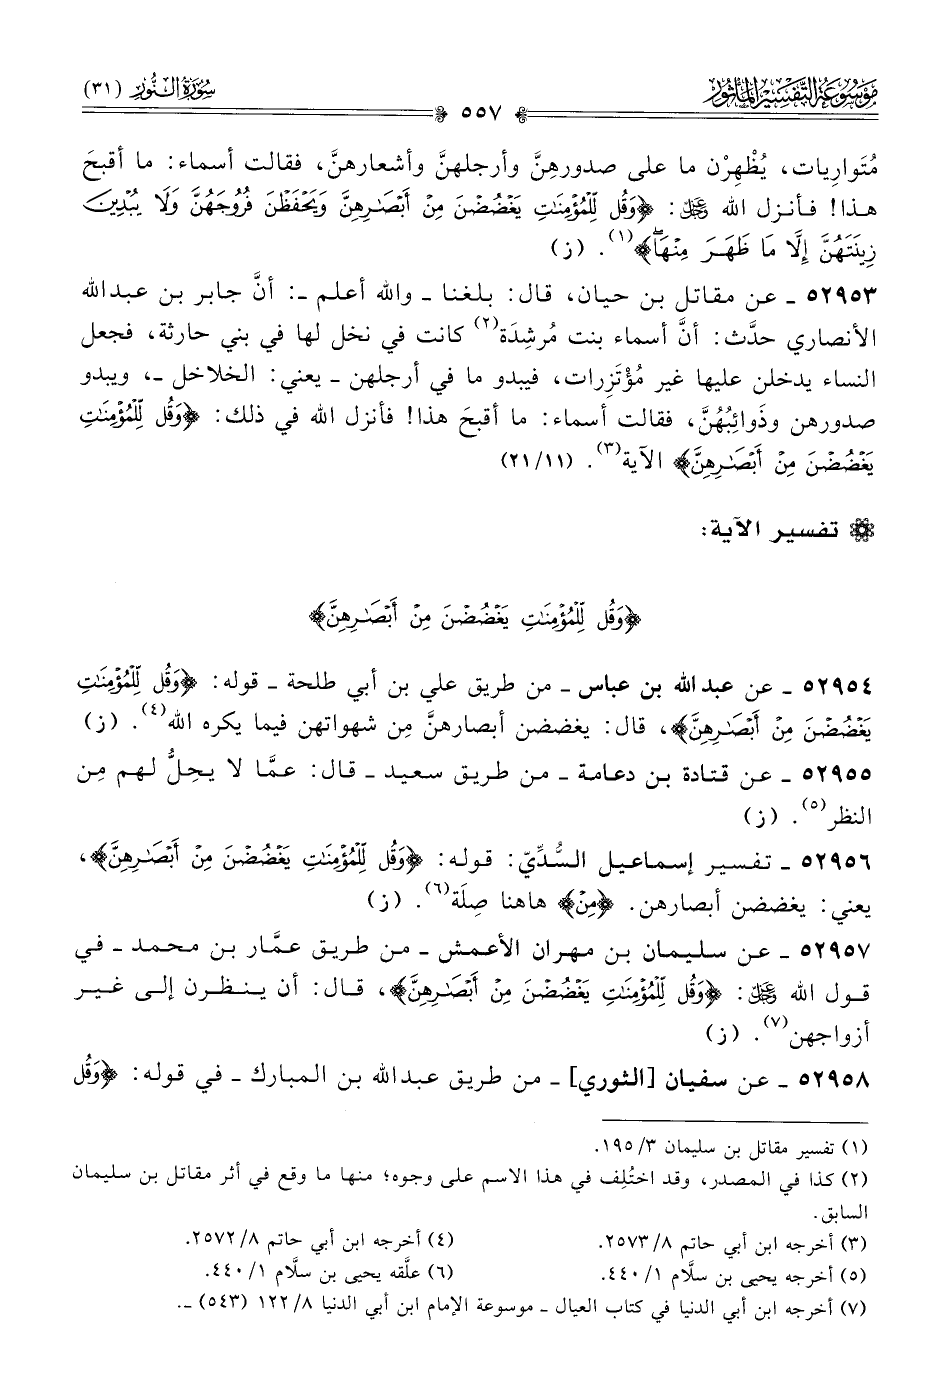 موسوعة التفسير المأثور
سورة النور (٣١)
٥٥٧
مُتَواريات، يُظْهِرْن ما على صدورهِنَّ وأرجلهنَّ وأشعارهنَّ، فقالت أسماء: ما أقبحَ
هذا! فأنزل الله ﷿: ﴿وَقُل لِّلْمُؤْمِنَٰتِ يَغْضُضْنَ مِنْ أَبْصَٰرِهِنَّ وَيَحْفَظْنَ فُرُوجَهُنَّ وَلَا يُبْدِينَ
زِينَتَهُنَّ إِلَّا مَا ظَهَرَ مِنْهَاۖ﴾(١). (ز)
٥٢٩٥٣ ـ عن مقاتل بن حيان، قال: بلغنا ـ والله أعلم ـ: أنَّ جابر بن عبدالله
الأنصاري حدَّث: أنَّ أسماء بنت مُرشِدَة(٢) كانت في نخل لها في بني حارثة، فجعل
النساء يدخلن عليها غير مُؤْتَزِرات، فيبدو ما في أرجلهن ـ يعني: الخلاخل ـ، ويبدو
صدورهن وذَوائِبُهُنَّ، فقالت أسماء: ما أقبحَ هذا! فأنزل الله في ذلك: ﴿وَقُل لِّلْمُؤْمِنَٰتِ
يَغْضُضْنَ مِنْ أَبْصَٰرِهِنَّ﴾ الآية(٣). (٢١/١١)
تفسير الآية:
﴿وَقُل لِّلْمُؤْمِنَٰتِ يَغْضُضْنَ مِنْ أَبْصَٰرِهِنَّ﴾
٥٢٩٥٤ ـ عن عبدالله بن عباس ـ من طريق علي بن أبي طلحة ـ قوله: ﴿وَقُل لِّلْمُؤْمِنَٰتِ
يَغْضُضْنَ مِنْ أَبْصَٰرِهِنَّ﴾، قال: يغضضن أبصارهنَّ مِن شهواتهن فيما يكره الله(٤). (ز)
٥٢٩٥٥ ـ عن قتادة بن دعامة ـ من طريق سعيد ـ قال: عمَّا لا يحِلُّ لهم مِن
النظر(٥). (ز)
٥٢٩٥٦ ـ تفسير إسماعيل السُّدِّيّ: قوله: ﴿وَقُل لِّلْمُؤْمِنَٰتِ يَغْضُضْنَ مِنْ أَبْصَٰرِهِنَّ﴾،
يعني: يغضضن أبصارهن. ﴿مِنْ﴾ هاهنا صِلَة(٦). (ز)
٥٢٩٥٧ ـ عن سليمان بن مهران الأعمش ـ من طريق عمَّار بن محمد ـ في
قول الله ﷿: ﴿وَقُل لِّلْمُؤْمِنَٰتِ يَغْضُضْنَ مِنْ أَبْصَٰرِهِنَّ﴾، قال: أن ينظرن إلى غير
أزواجهن(٧). (ز)
٥٢٩٥٨ ـ عن سفيان [الثوري] ـ من طريق عبدالله بن المبارك ـ في قوله: ﴿وَقُل
(١) تفسير مقاتل بن سليمان ٣/ ١٩٥.
(٢) كذا في المصدر، وقد اختُلِف في هذا الاسم على وجوه؛ منها ما وقع في أثر مقاتل بن سليمان
السابق.
(٣) أخرجه ابن أبي حاتم ٨/ ٢٥٧٣.
(٤) أخرجه ابن أبي حاتم ٨/ ٢٥٧٢.
(٥) أخرجه يحيى بن سلَّام ١/ ٤٤٠.
(٦) علَّقه يحيى بن سلَّام ١/ ٤٤٠.
(٧) أخرجه ابن أبي الدنيا في كتاب العيال ـ موسوعة الإمام ابن أبي الدنيا ٨/ ١٢٢ (٥٤٣) ـ.